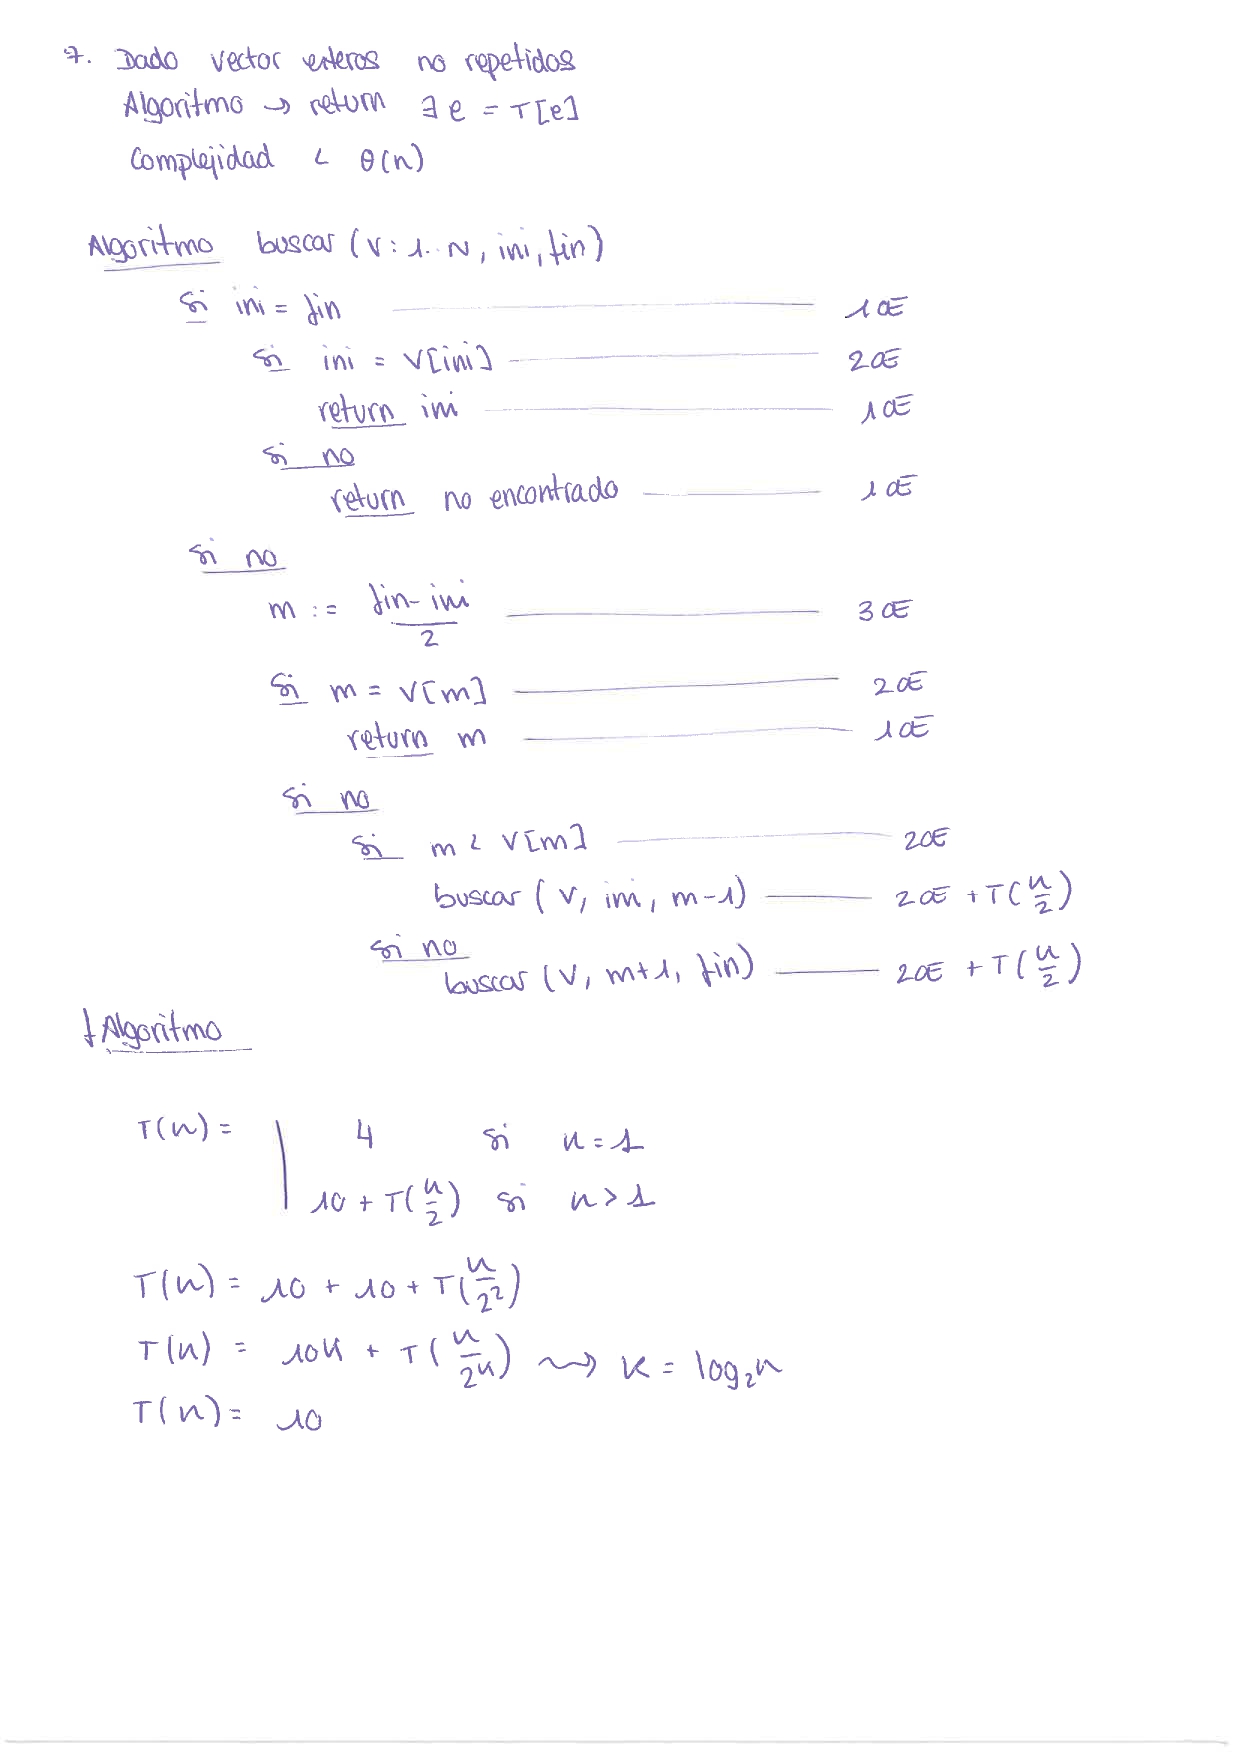 7. Dado vector enteros no repetidos
Algoritmo → return ∃ e = T[e]
Complejidad < θ(n)
Algoritmo buscar (V: 1..N, ini, fin)
si ini = fin — 1OE
si ini = V[ini] — 2OE
return ini — 1OE
si no
return no encontrado — 1OE
si no
m := (fin - ini)/2 — 3OE
si m = V[m] — 2OE
return m — 1OE
si no
si m < V[m] — 2OE
buscar (V, ini, m-1) — 2OE + T(n/2)
si no
buscar (V, m+1, fin) — 2OE + T(n/2)
fAlgoritmo
T(n) = | 4 si n = 1
10 + T(n/2) si n > 1
T(n) = 10 + 10 + T(n/2²)
T(n) = 10K + T(n/2ᴷ) ⇝ K = log₂n
T(n) = 10